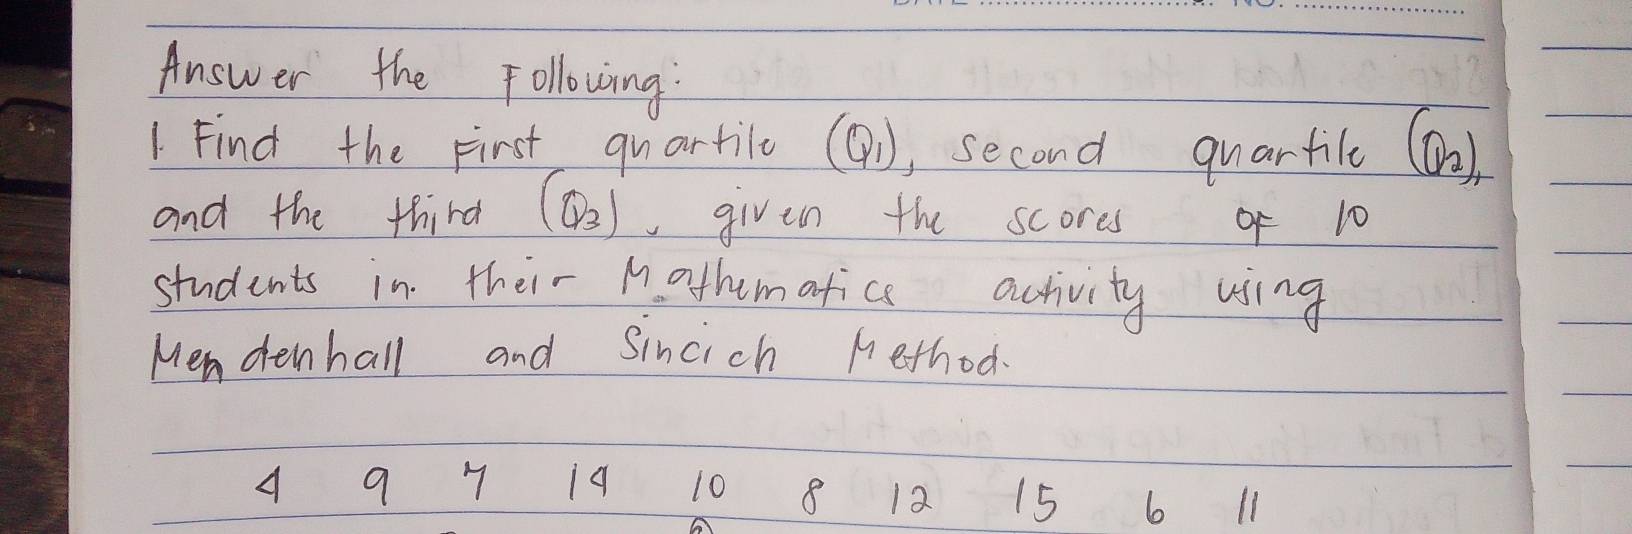 Answer the Following:
1. Find the First quartile (Q1), second quartile (Q2),
and the third (Q3), given the scores of 10
students in their Mathematics activity using
Mendenhall and Sincich Method.
4 9 7 14 10 8 12 15 6 11